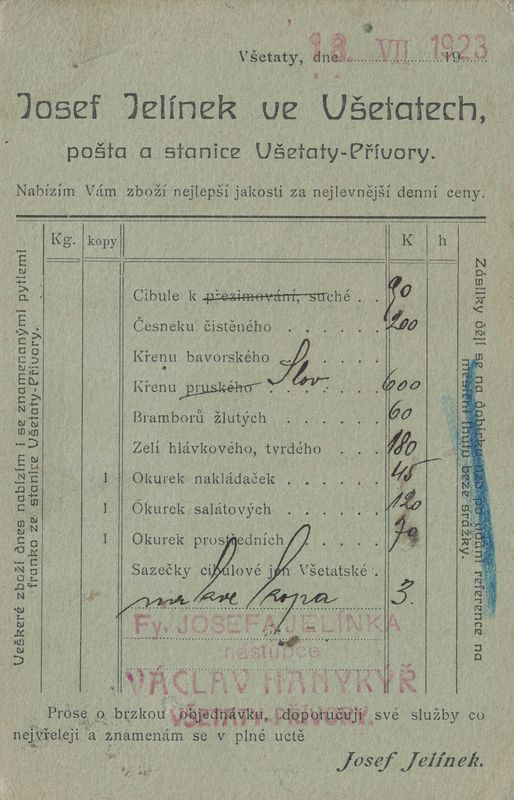 Všetaty, dne 18. VII 1923
Josef Jelínek ve Všetatech,
pošta a stanice Všetaty-Přívory.
Nabízím Vám zboží nejlepší jakosti za nejlevnější denní ceny.
Kg. kopy K h
Cibule k přezimování, suché . . 90
Česneku čistěného . . . . . . 200
Křenu bavorského . . . . . .
Křenu pruského Slov . . . . . . 600
Bramborů žlutých . . . . . . 60
Zelí hlávkového, tvrdého . . . 180
1 Okurek nakládaček . . . . . 45
1 Okurek salátových . . . . . 120
1 Okurek prostředních . . . . . 70
Sazečky cibulové jen Všetatské .
mrkve kopa 3.
Fy. JOSEFA JELÍNKA
nástupce
VÁCLAV HANYKÝŘ
VŠETATY-PŘÍVORY
Prose o brzkou objednávku, doporučuji své služby co
nejvřeleji a znamenám se v plné uctě
Josef Jelínek.
Veškeré zboží dnes nabízím i se znamenanými pytlemi
franko ze stanice Všetaty-Přívory.
Zásilky dějí se na dobírku neb po udání reference na
měsíční lhůtu beze srážky.